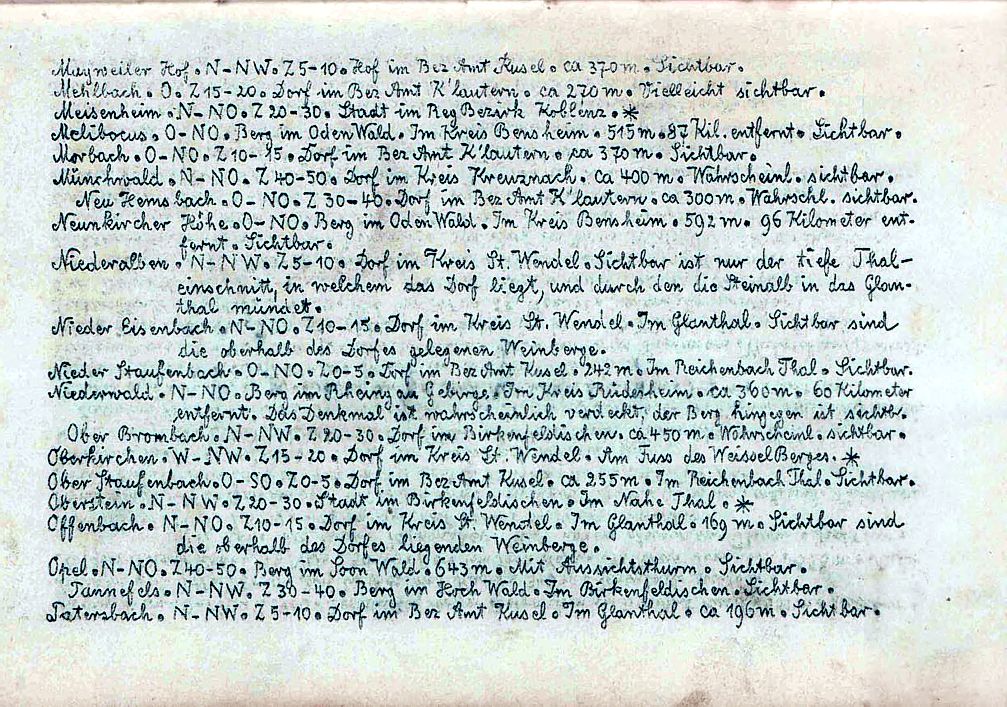 Mayweiler Hof. N-NW. Z 5-10. Hof im Bez Amt Kusel. ca 370 m. Sichtbar.
Mehlbach. O. Z 15-20. Dorf im Bez Amt K'lautern. ca 270 m. Vielleicht sichtbar.
Meisenheim. N-NO. Z 20-30. Stadt im Reg Bezirk Koblenz. *
Melibocus. O-NO. Berg im Oden Wald. Im Kreis Bensheim. 515 m. 87 Kil. entfernt. Sichtbar.
Morbach. O-NO. Z 10-15. Dorf im Bez Amt K'lautern. ca 370 m. Sichtbar.
Münchwald. N-NO. Z 40-50. Dorf im Kreis Kreuznach. ca 400 m. Wahrscheinl. sichtbar.
Neu Hemsbach. O-NO. Z 30-40. Dorf im Bez Amt K'lautern. ca 300 m. Wahrschl. sichtbar.
Neunkircher Höhe. O-NO. Berg im Oden Wald. Im Kreis Bensheim. 592 m. 96 Kilometer ent-
fernt. Sichtbar.
Niederalben. N-NW. Z 5-10. Dorf im Kreis St. Wendel. Sichtbar ist nur der tiefe Thal-
einschnitt, in welchem das Dorf liegt, und durch den die Steinalb in das Glan-
thal mündet.
Nieder Eisenbach. N-NO. Z 10-15. Dorf im Kreis St. Wendel. Im Glanthal. Sichtbar sind
die oberhalb des Dorfes gelegenen Weinberge.
Nieder Staufenbach. O-NO. Z 0-5. Dorf im Bez Amt Kusel. 242 m. Im Reichenbach Thal. Sichtbar.
Niederwald. N-NO. Berg im Rheingau Gebirge. Im Kreis Rüdesheim. ca 360 m. 60 Kilometer
entfernt. Das Denkmal ist wahrscheinlich verdeckt, der Berg hingegen ist sichtb.
Ober Brombach. N-NW. Z 20-30. Dorf im Birkenfeldischen. ca 450 m. Wahrscheinl. sichtbar.
Oberkirchen. W-NW. Z 15-20. Dorf im Kreis St. Wendel. Am Fuss des Weissel Berges. *
Ober Staufenbach. O-SO. Z 0-5. Dorf im Bez Amt Kusel. ca 255 m. Im Reichenbach Thal. Sichtbar.
Oberstein. N-NW. Z 20-30. Stadt im Birkenfeldischen. Im Nahe Thal. *
Offenbach. N-NO. Z 10-15. Dorf im Kreis St. Wendel. Im Glanthal. 169 m. Sichtbar sind
die oberhalb des Dorfes liegenden Weinberge.
Opel. N-NO. Z 40-50. Berg im Soon Wald. 643 m. Mit Aussichtsthurm. Sichtbar.
Tannefels. N-NW. Z 30-40. Berg im Hoch Wald. Im Birkenfeldischen. Sichtbar.
Patersbach. N-NW. Z 5-10. Dorf im Bez Amt Kusel. Im Glanthal. ca 196 m. Sichtbar.